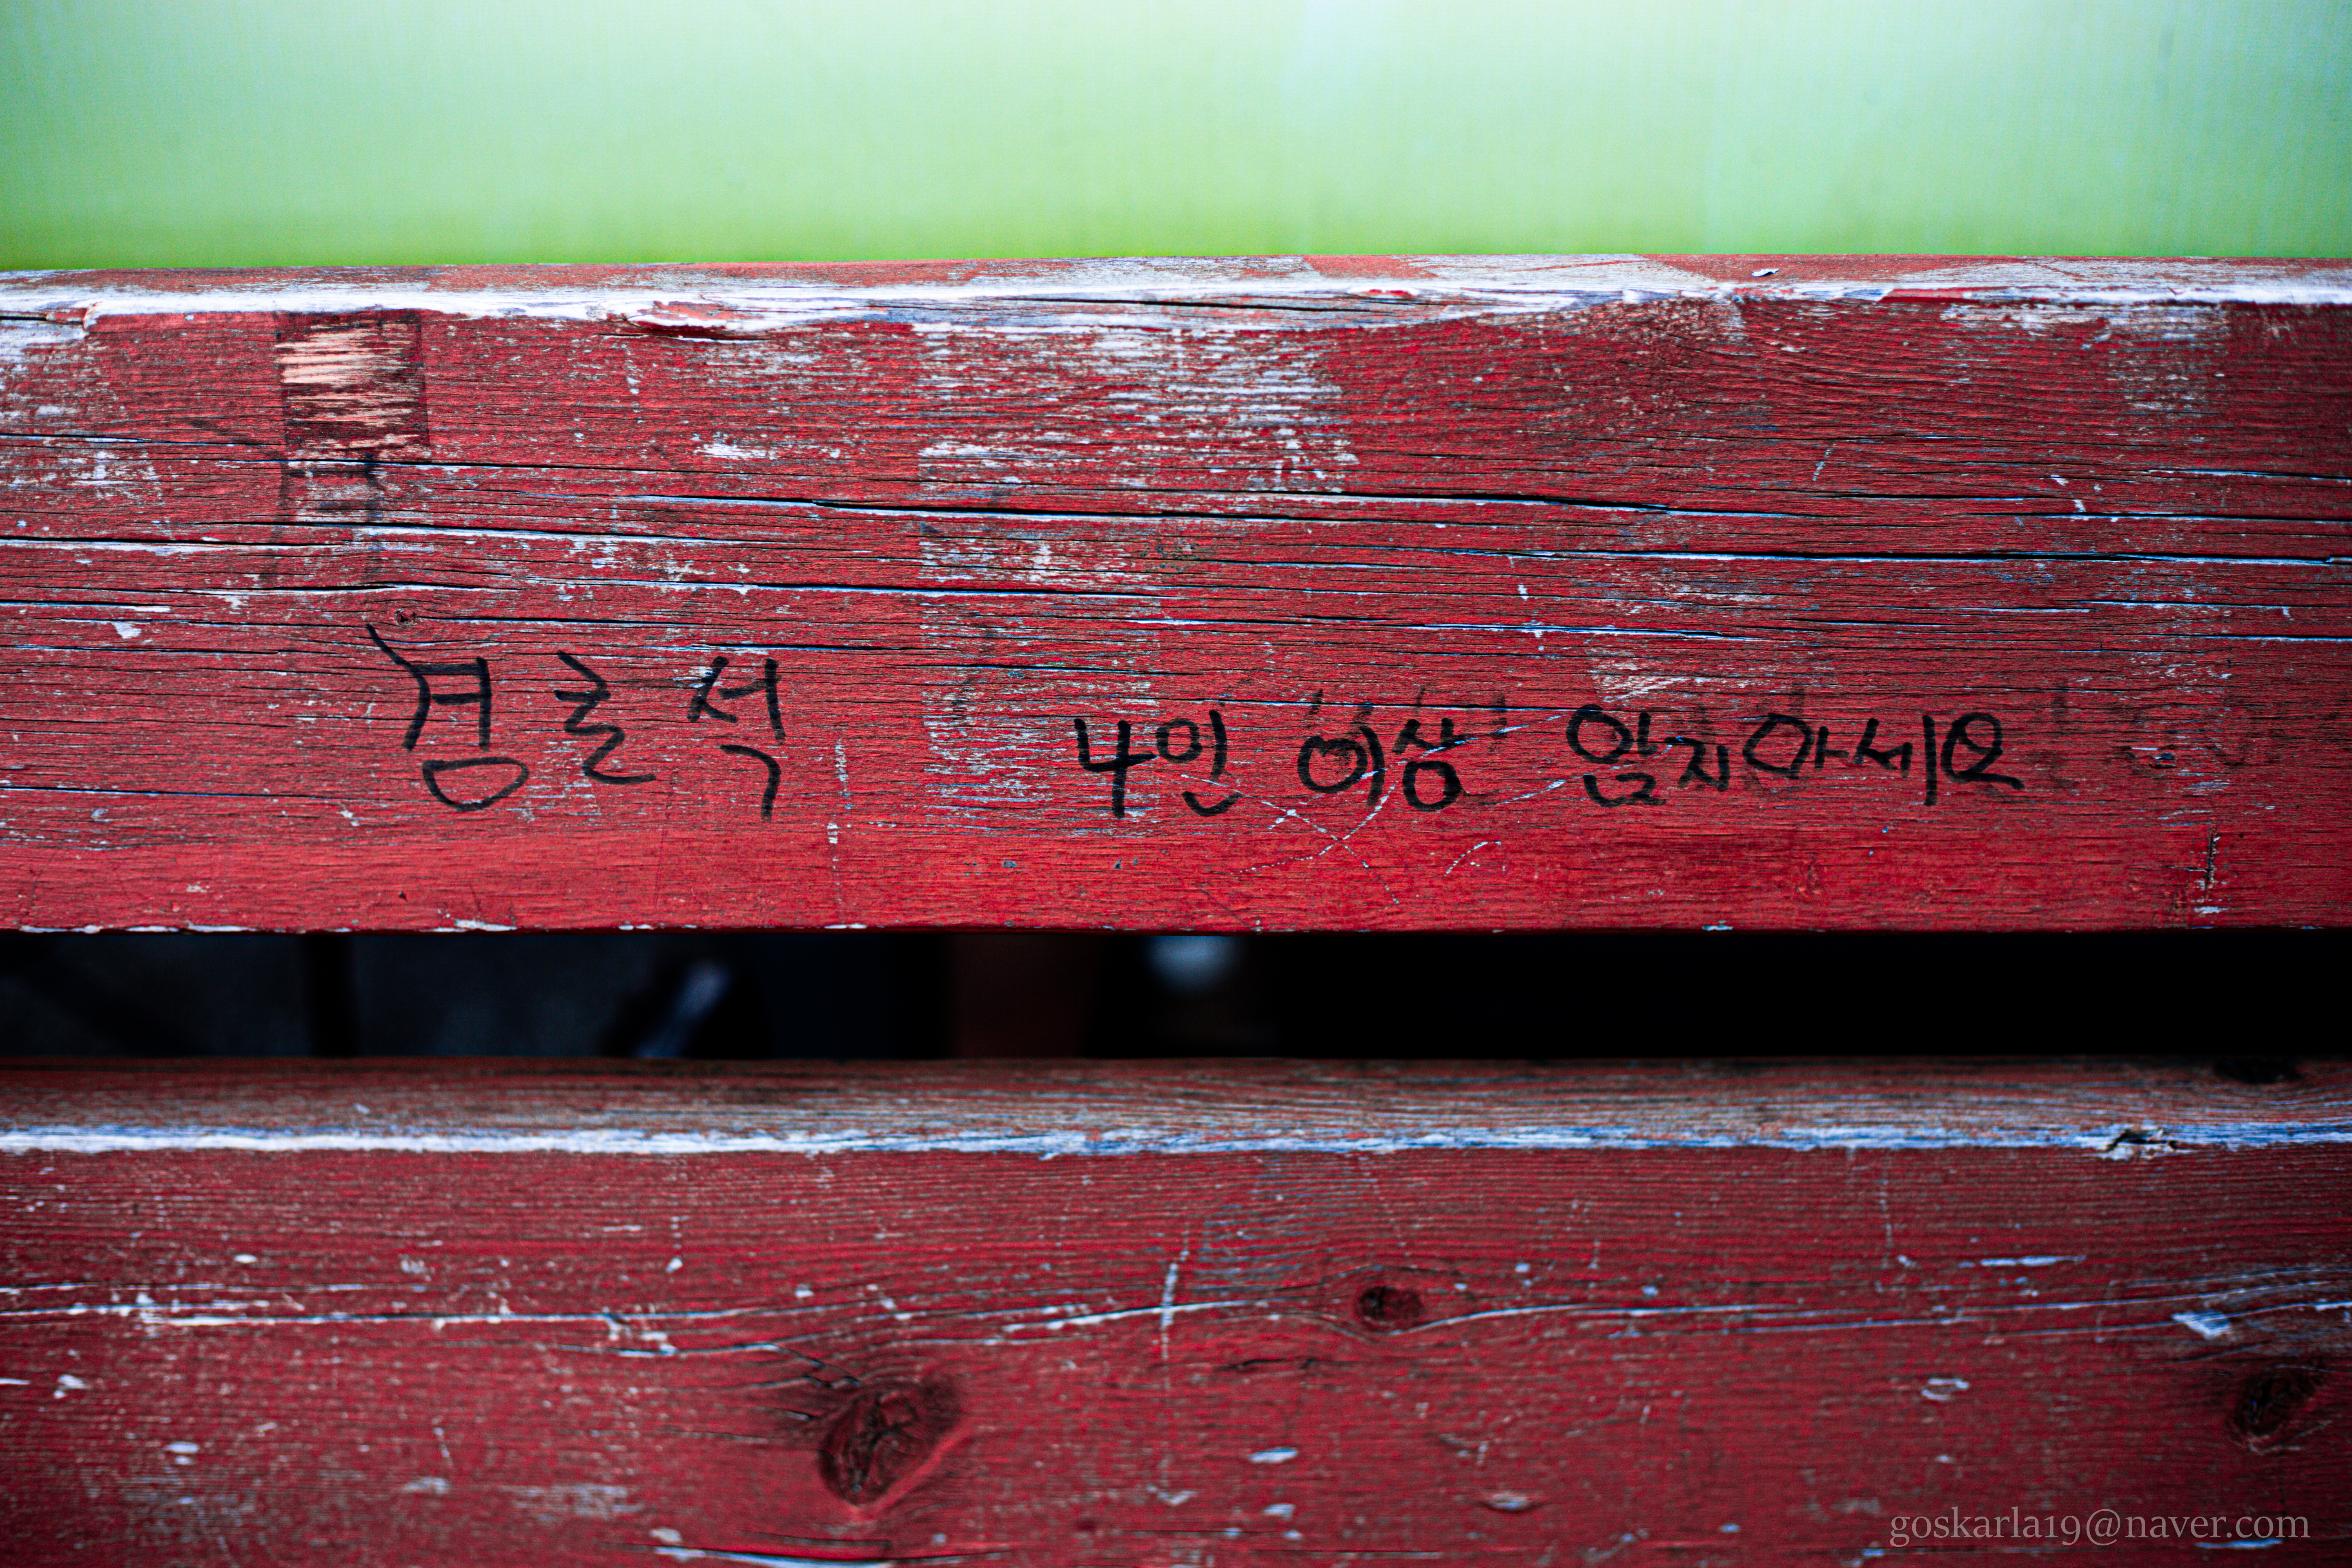 경로석 4인 이상 앉지마세요
goskarla19@naver.com